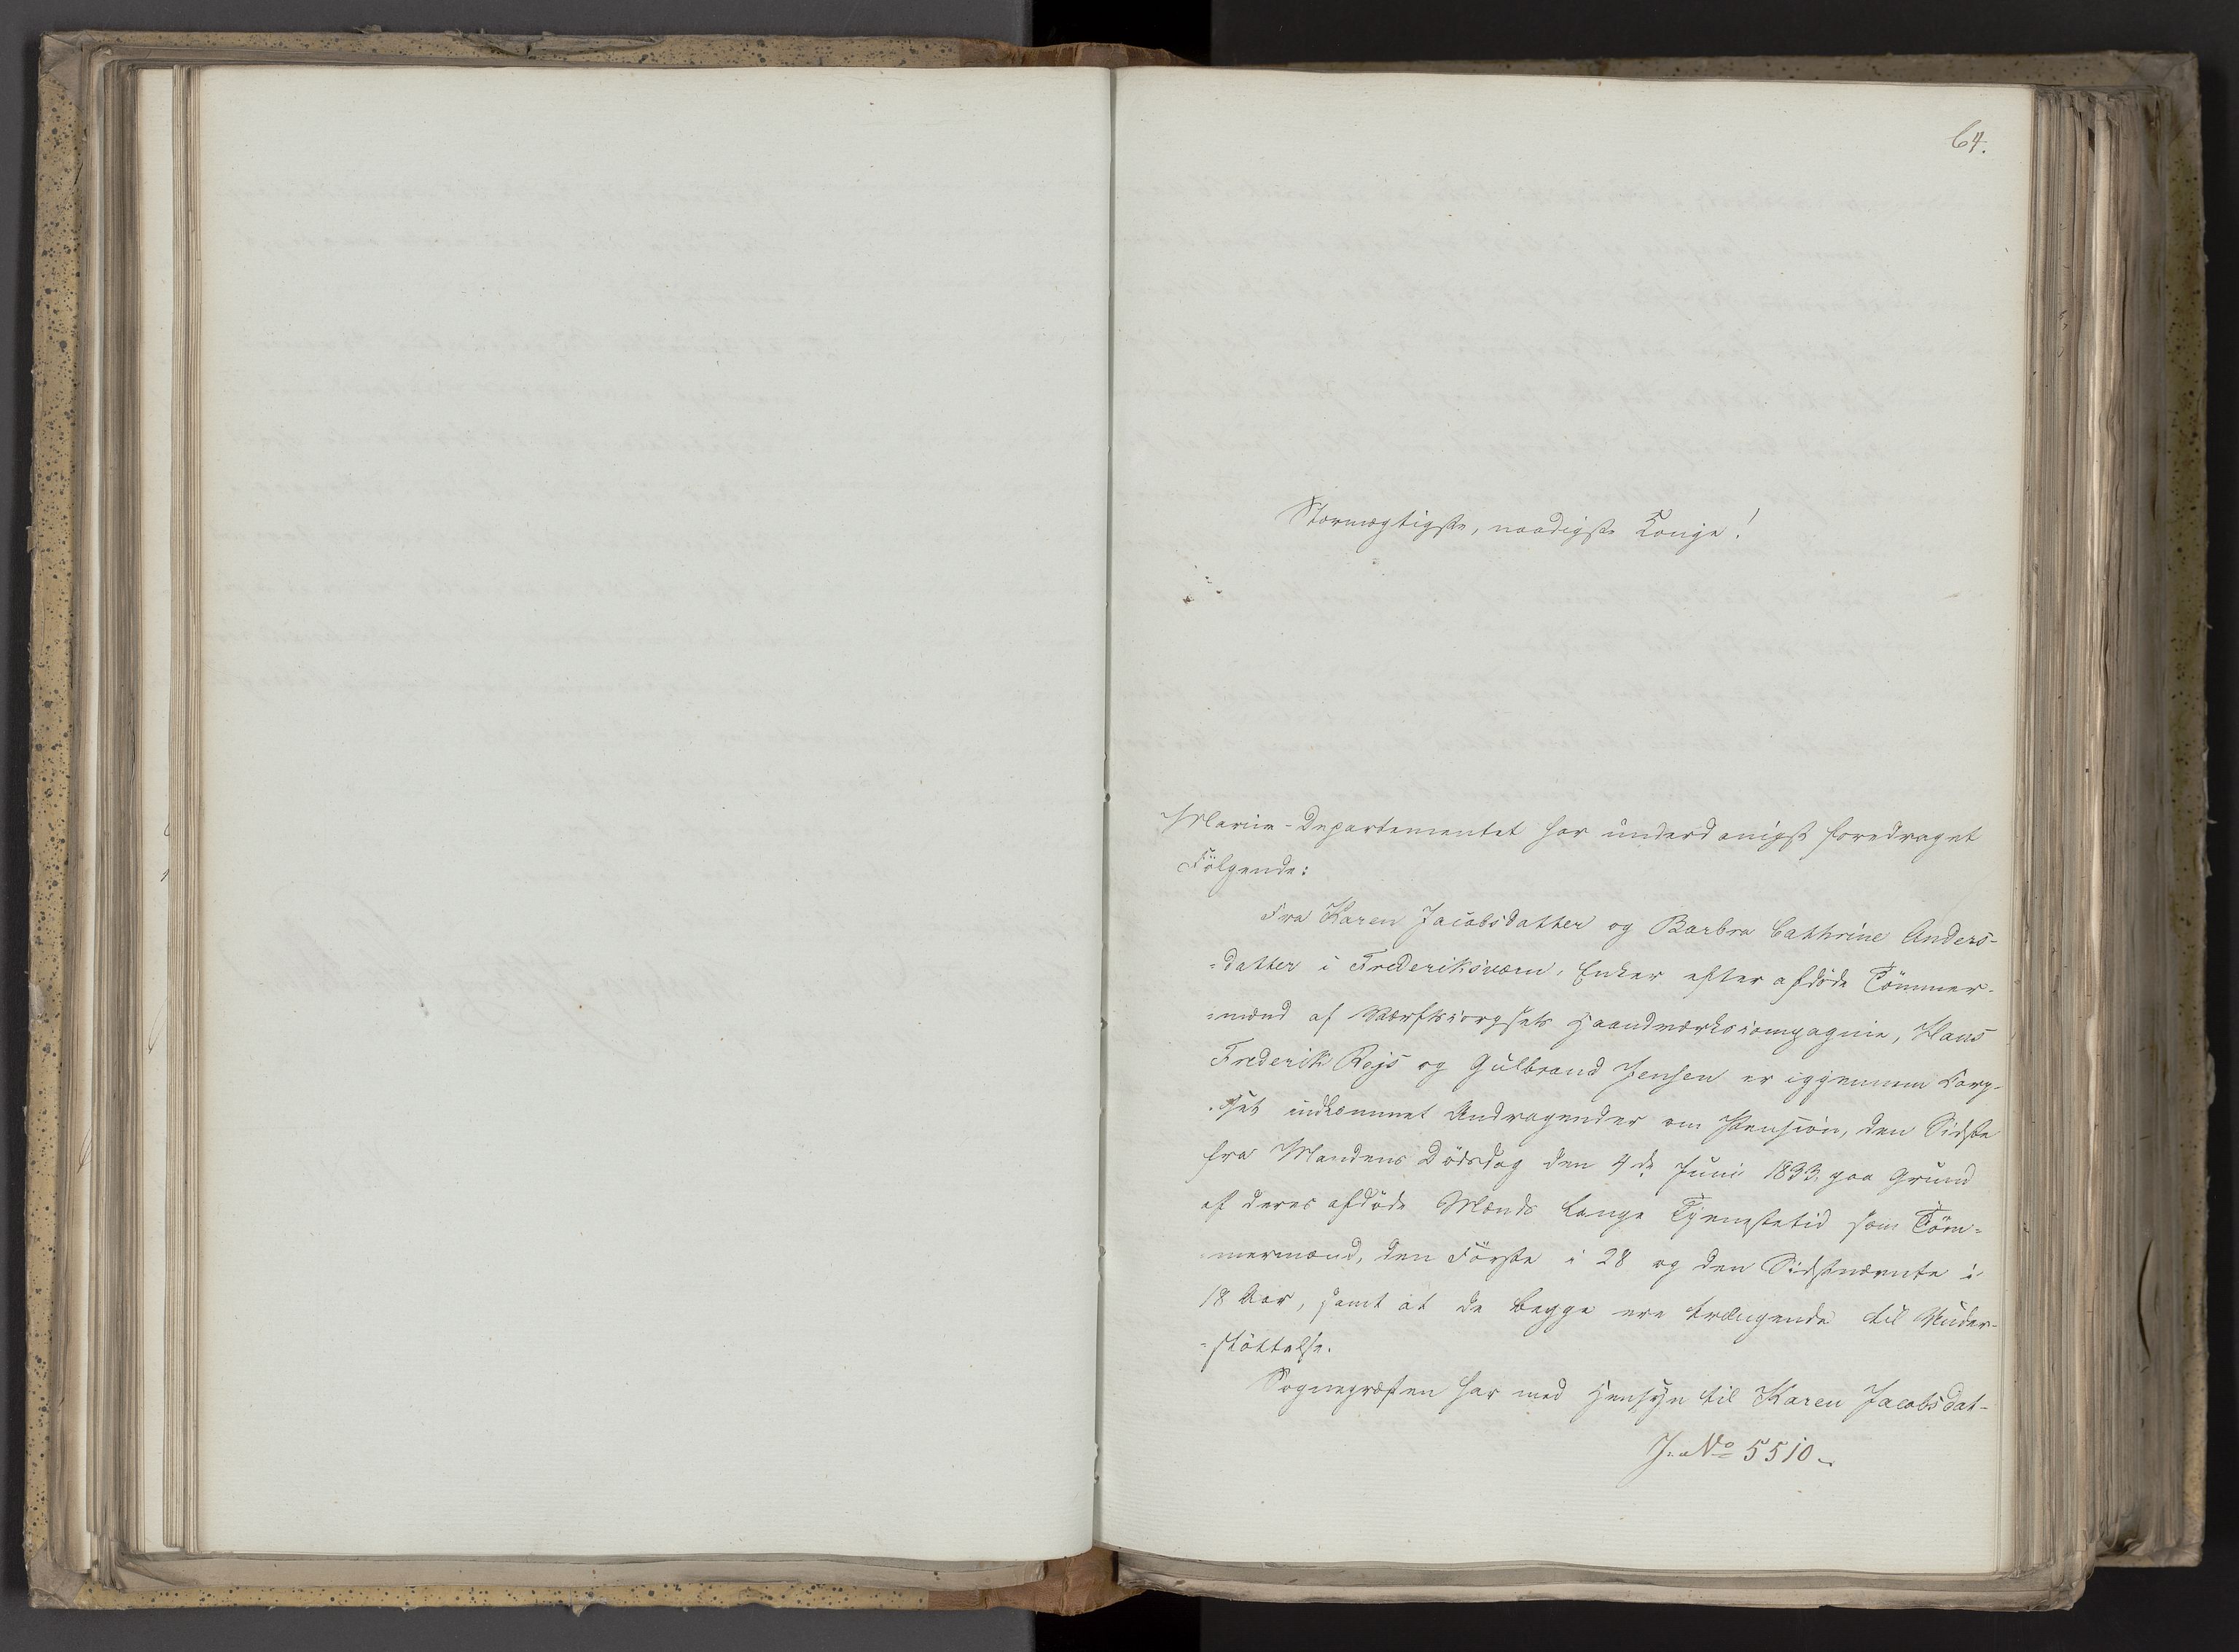 64.
Stormægtigste, naadigste Konge!
Marine-Departementet har underdanigst foredraget
Følgende:
Fra Karen Jacobsdatter og Barbra Cathrine Anders-
-datter i Frederiksværn, Enker efter afdøde Tømmer-
-mænd af Værftscorpsets Haandværkscompagnie, Hans
Frederik Rejs og Gulbrand Jensen er igjennem Corp-
-set indkommet Andragender om Pension, den Sidste
fra Mandens Dødsdag den 4de Juni 1833, paa Grund
af deres afdøde Mænds lange Tjenestetid som Tøm-
mermænd, den Første i 28 og den Sidstnævnte i
18 Aar, samt at de begge ere trængende til Under-
-støttelse.
Sognepræsten har med Hensyn til Karen Jacobsdat-
J. No 5510